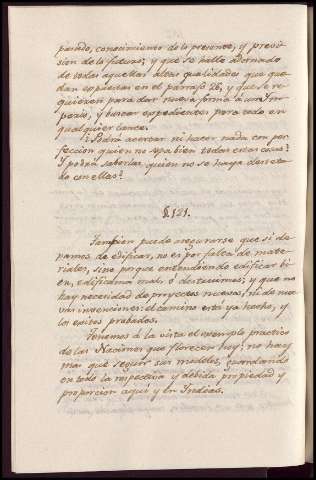 pasado, conocimiento de lo presente, y previ-
sion de lo futuro; y que se halle adornado
de todas aquellas altas qualidades que que-
dan expuestas en el parrafo 26, y que se re-
quieren para dar nueva forma á un Im-
perio, y buscar expedientes para todo en
qualquier lance.
¿Podrá acertar ni hacer nada con per-
feccion quien no sepa bien todas estas cosas?
Y podrá saberlas quien no se haya desveta-
do en ellas?
§. 121.
Tambien puede asegurarse que si de-
xamos de edificar, no es por falta de mate-
riales, sino porque entendiendo edificar bi-
en, edificamos mal, ó destruimos; y que no
hay necesidad de proyectos nuevos, ni de nue-
vas invenciones: el camino está ya hecho, y
los exitos probados.
Tenemos á la vista el exemplo practico
de las Naciones que florecen hoy; no hay
mas que seguir sus modelos, guardando
en todo la respectiva y debida propiedad y
proporcion aqui y en Indias.